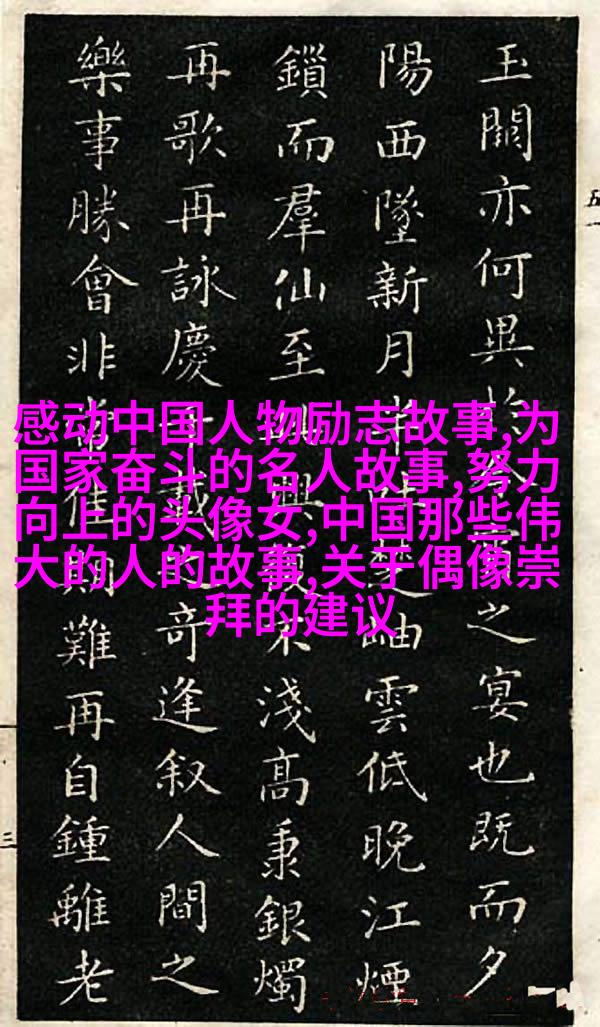 玉闕亦何異於今之宴也既而夕
陽西墜新月半吐楚岫雲低晚江煙
鎖而羣仙至興復不淺高秉銀燭
再歌再詠慶千載之奇逢叙人間之
樂事勝會非常佳期難再自鍾離老
感动中国人物励志故事,为
国家奋斗的名人故事,努力
向上的头像女,中国那些伟
大的人的故事,关于偶像崇
拜的建议
五一
三